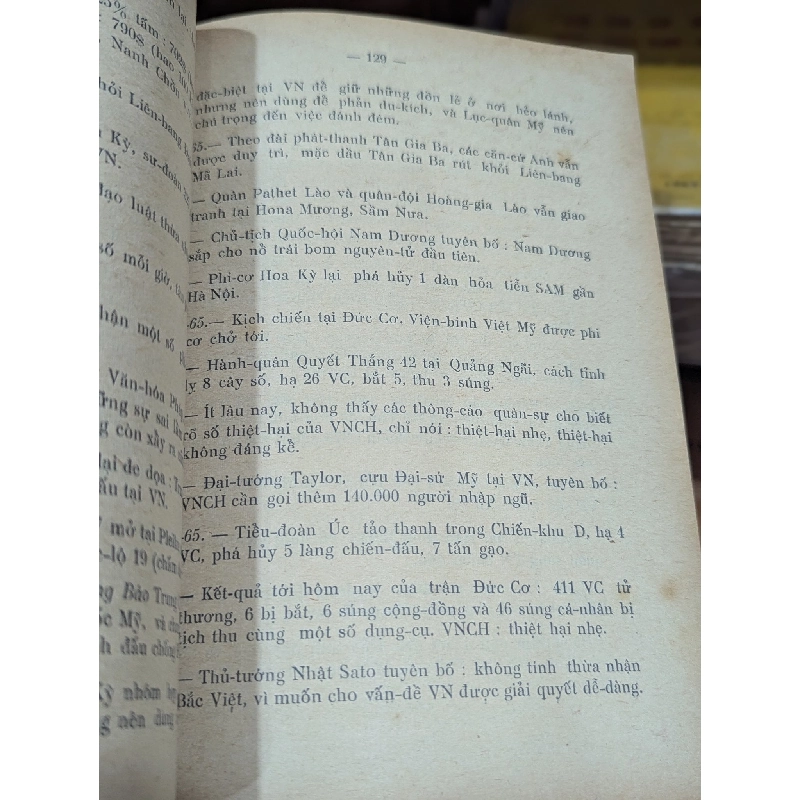 5% tấm : 7028
7908 (bao
Nanh Chồn
khỏi Liên-bang
Kỳ, sư-đoàn
VN.
đạo luật thừa
số mỗi giờ,
nhận một số
Văn-hóa
ững sự sai
g còn xẩy ra
đe dọa :
ấu tại VN.
mở tại Plei
-lộ 19 (chấm
ng Bảo Trung
ốc Mỹ, và
h đấu chống
Kỳ nhóm họp
ng nên dùng
— 129 —
đặc-biệt tại VN để giữ những đồn lẻ ở nơi hẻo lánh,
nhưng nên dùng để phản du-kích, và Lục-quân Mỹ nên
chú trọng đến việc đánh đêm.
65.— Theo đài phát-thanh Tân Gia Ba, các căn-cứ Anh vẫn
được duy trì, mặc dầu Tân Gia Ba rút khỏi Liên-bang
Mã Lai.
— Quân Pathet Lào và quân-đội Hoàng-gia Lào vẫn giao
tranh tại Hona Mương, Sầm Nưa.
— Chủ-tịch Quốc-hội Nam Dương tuyên bố : Nam Dương
sắp cho nổ trái bom nguyên-tử đầu tiên.
— Phi-cơ Hoa Kỳ lại phá hủy 1 dàn hỏa tiễn SAM gần
Hà Nội.
-65.— Kịch chiến tại Đức Cơ. Viện-binh Việt Mỹ được phi
cơ chở tới.
— Hành-quân Quyết Thắng 42 tại Quảng Ngãi, cách tỉnh
lỵ 8 cây số, hạ 26 VC, bắt 5, thu 3 súng.
— Ít lâu nay, không thấy các thông-cáo quân-sự cho biết
rõ số thiệt-hại của VNCH, chỉ nói : thiệt-hại nhẹ, thiệt-hại
không đáng kể.
— Đại-tướng Taylor, cựu Đại-sứ Mỹ tại VN, tuyên bố :
VNCH cần gọi thêm 140.000 người nhập ngũ.
-65. — Tiểu-đoàn Úc tảo thanh trong Chiến-khu D, hạ 4
VC, phá hủy 5 làng chiến-đấu, 7 tấn gạo.
— Kết-quả tới hôm nay của trận Đức Cơ : 411 VC tử
thương, 6 bị bắt, 6 súng cộng-đồng và 46 súng cá-nhân bị
tịch thu cùng một số dụng-cụ. VNCH : thiệt hại nhẹ.
— Thủ-tướng Nhật Sato tuyên bố : không tính thừa nhận
Bắc Việt, vì muốn cho vấn-đề VN được giải quyết dễ-dàng.